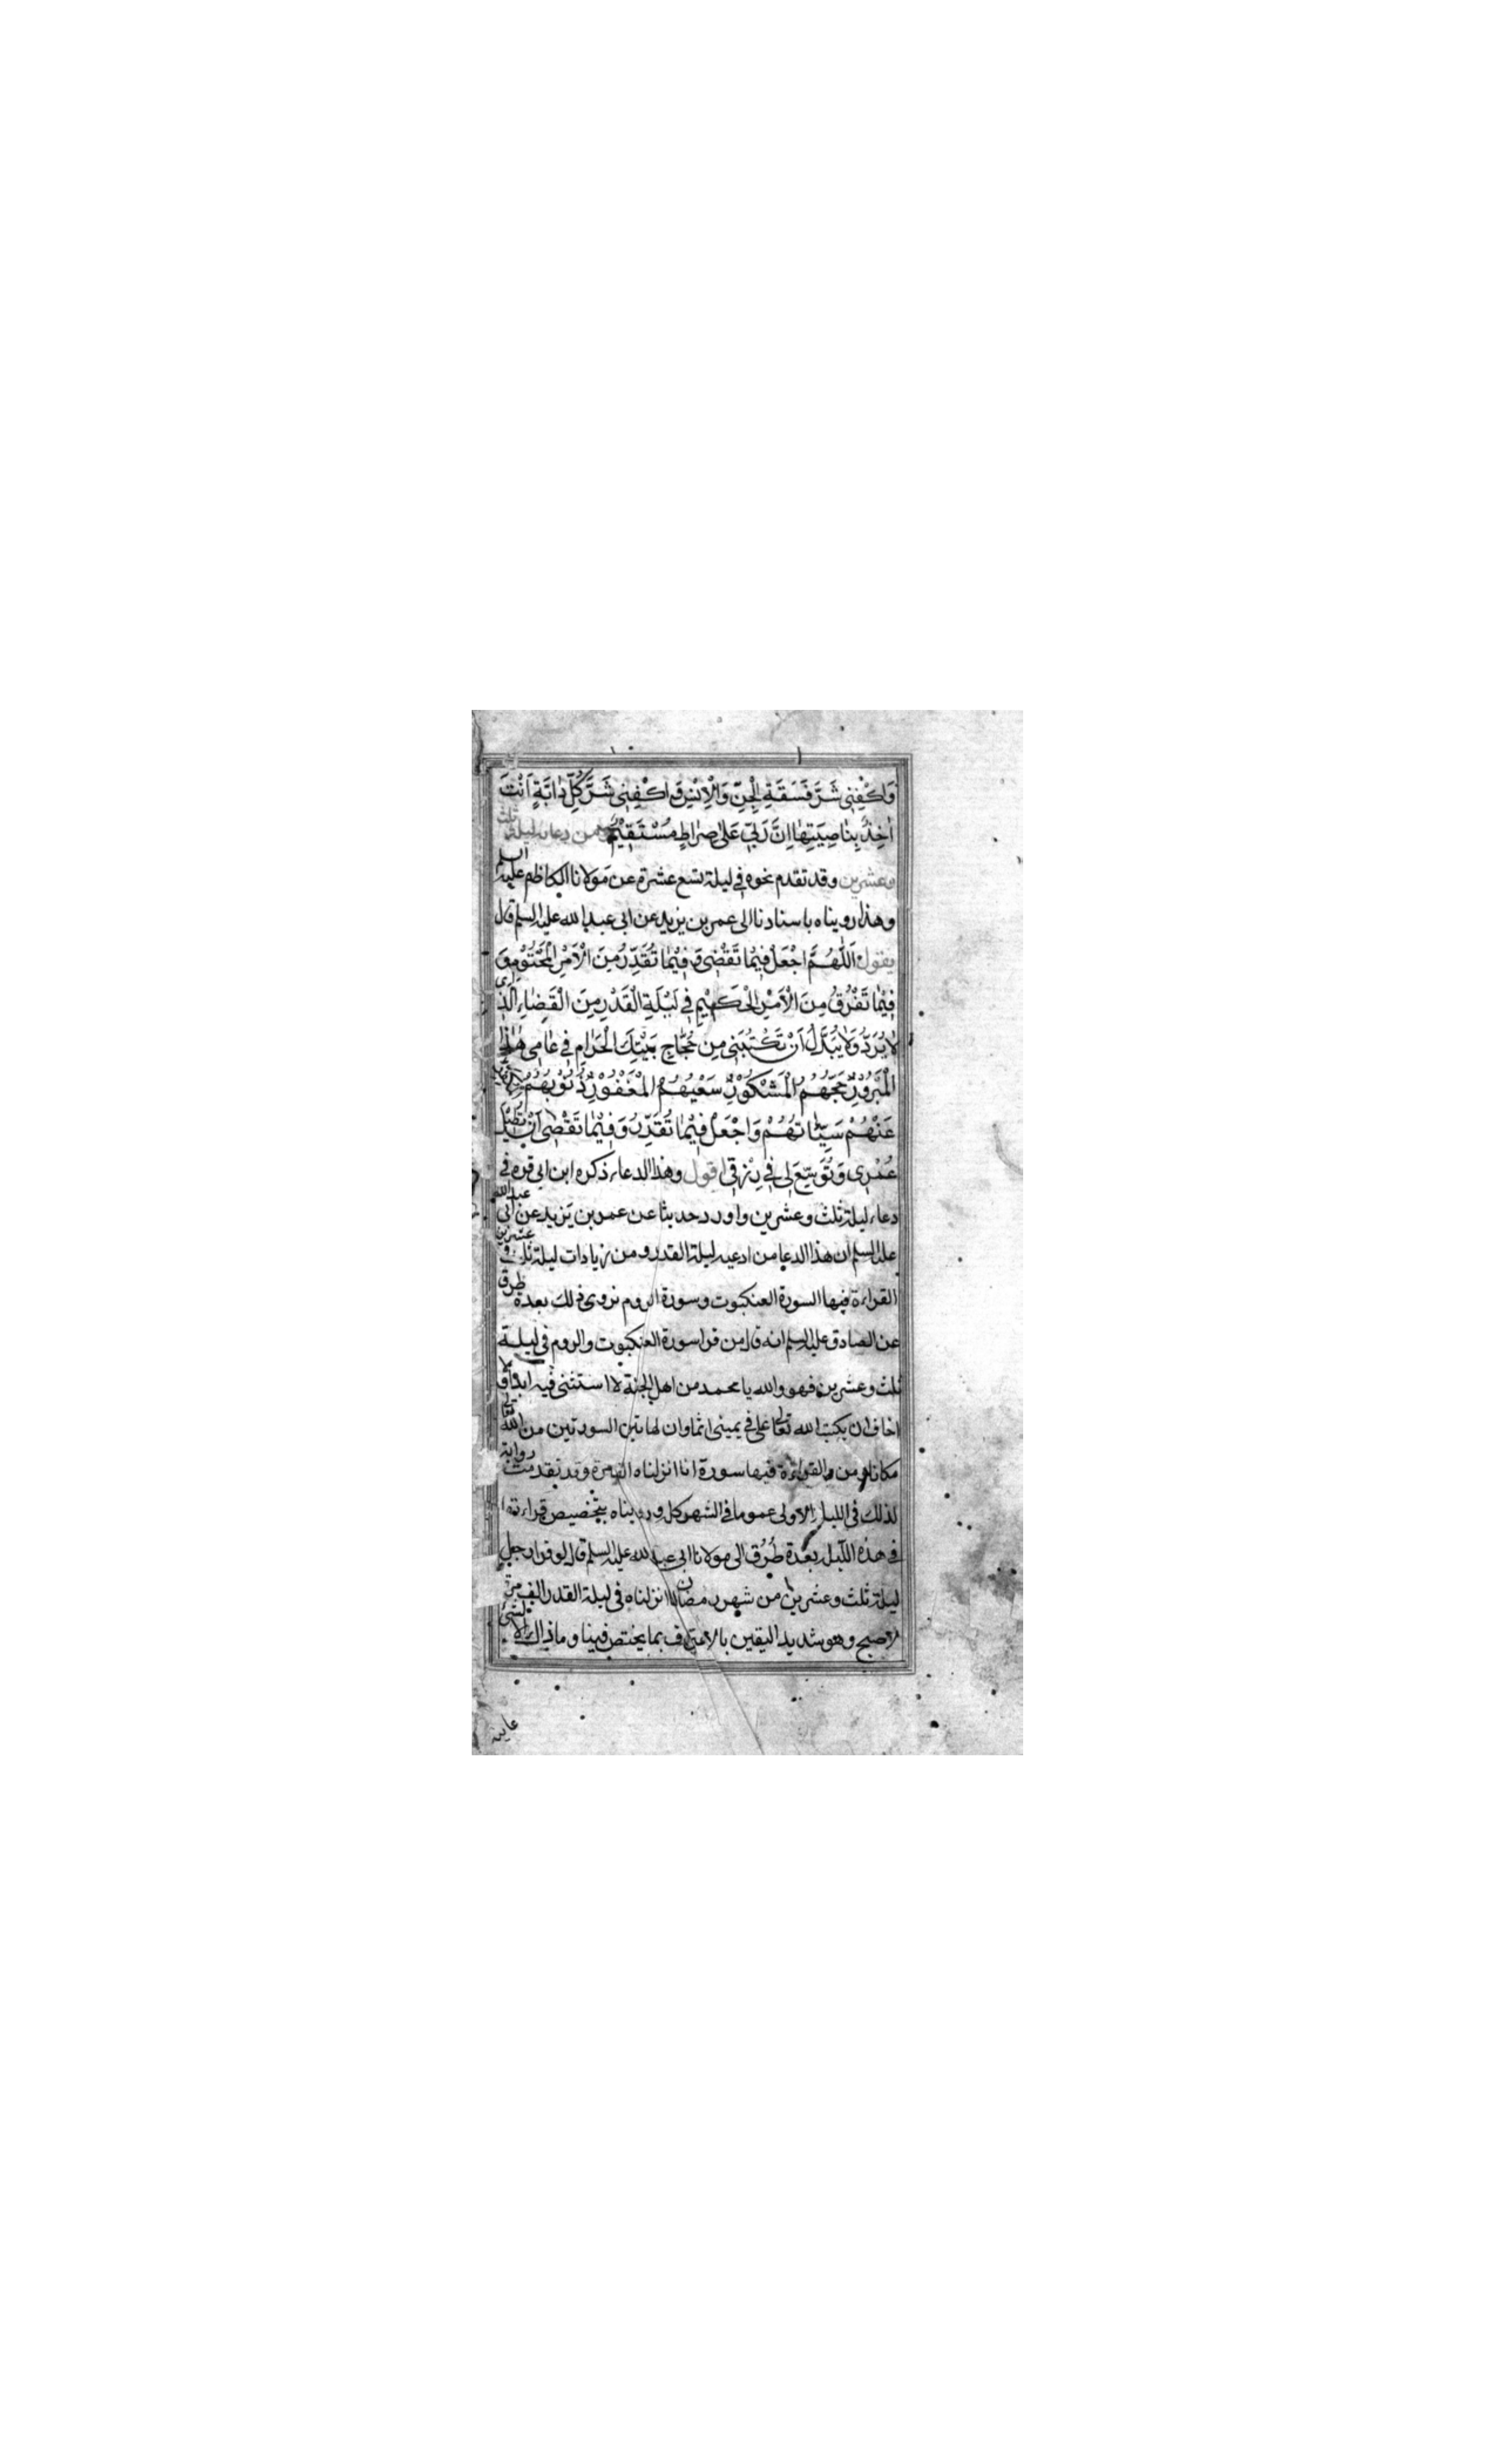 وَاكْفِنِي شَرَّ فَسَقَةِ الْجِنِّ وَالْاِنْسِ وَاكْفِنِي شَرَّ كُلِّ دَابَّةٍ اَنْتَ
اخِذٌ بِنَاصِيَتِهَا اِنَّ رَبِّي عَلَى صِرَاطٍ مُسْتَقِيْمٍ ومن دعاء ليلة ثلث
وعشرين وقد تقدم نحوه في ليلة تسع عشرة عن مولانا الكاظم عليه السلم
وهذا رويناه باسنادنا الى عمر بن يزيد عن ابى عبد الله عليه السلم قال
يقول اَللّٰهُمَّ اجْعَلْ فِيْمَا تَقْضِي وَفِيْمَا تُقَدِّرُ مِنَ الْاَمْرِ الْمَحْتُوْمِ وَ
فِيْمَا تَفْرُقُ مِنَ الْاَمْرِ الْحَكِيْمِ فِي لَيْلَةِ الْقَدْرِ مِنَ الْقَضَاءِ الَّذِي
لَا يُرَدُّ وَلَا يُبَدَّلُ اَنْ تَكْتُبَنِي مِنْ حُجَّاجِ بَيْتِكَ الْحَرَامِ فِي عَامِي هٰذَا
الْمَبْرُوْرِ حَجُّهُمُ الْمَشْكُوْرِ سَعْيُهُمُ الْمَغْفُوْرِ ذُنُوْبُهُمُ
عَنْهُمْ سَيِّئَاتُهُمْ وَاجْعَلْ فِيْمَا تُقَدِّرُ وَفِيْمَا تَقْضِي اَنْ تُطِيْلَ
عُمْرِي وَتُوَسِّعَ لِي فِي رِزْقِي اقول وهذا الدعاء ذكره ابن ابي قره في
دعاء ليلة ثلث وعشرين واورد حديثا عن عمر بن يزيد عن ابى عبد الله
عليه السلم ان هذا الدعا من ادعيه ليلة القدر ومن زيادات ليلة ثلث وعشرين
القراءة فيها السورة العنكبوت وسورة الروم نروى ذلك بعدة طرق
عن الصادق عليه السلم انه قال من قرا سورة العنكبوت والروم في ليلة
ثلث وعشرين فهو والله يا محمد من اهل الجنة لا استثنى فيه ابدا ولا
اخاف ان يكتب الله تعالى على في يميني اثما وان لهاتين السورتين من الله تعالى
مكانا ومن القراءة فيها سورة انا انزلناه الف مرة وقد تقدمت رواية
لذلك في الليلة الاولى عموما في الشهر كله ورويناه بتخصيص قراءتها
في هذه الليله بعدة طُرُق الى مولانا ابى عبد الله عليه السلم قال لو قرا رجل
ليلة ثلث وعشرين من شهر رمضان انا انزلناه في ليلة القدر الف مرة
لاصبح وهو شديد اليقين بالاعتراف بما يختص فينا وما ذاك الا لشئ
عاينه